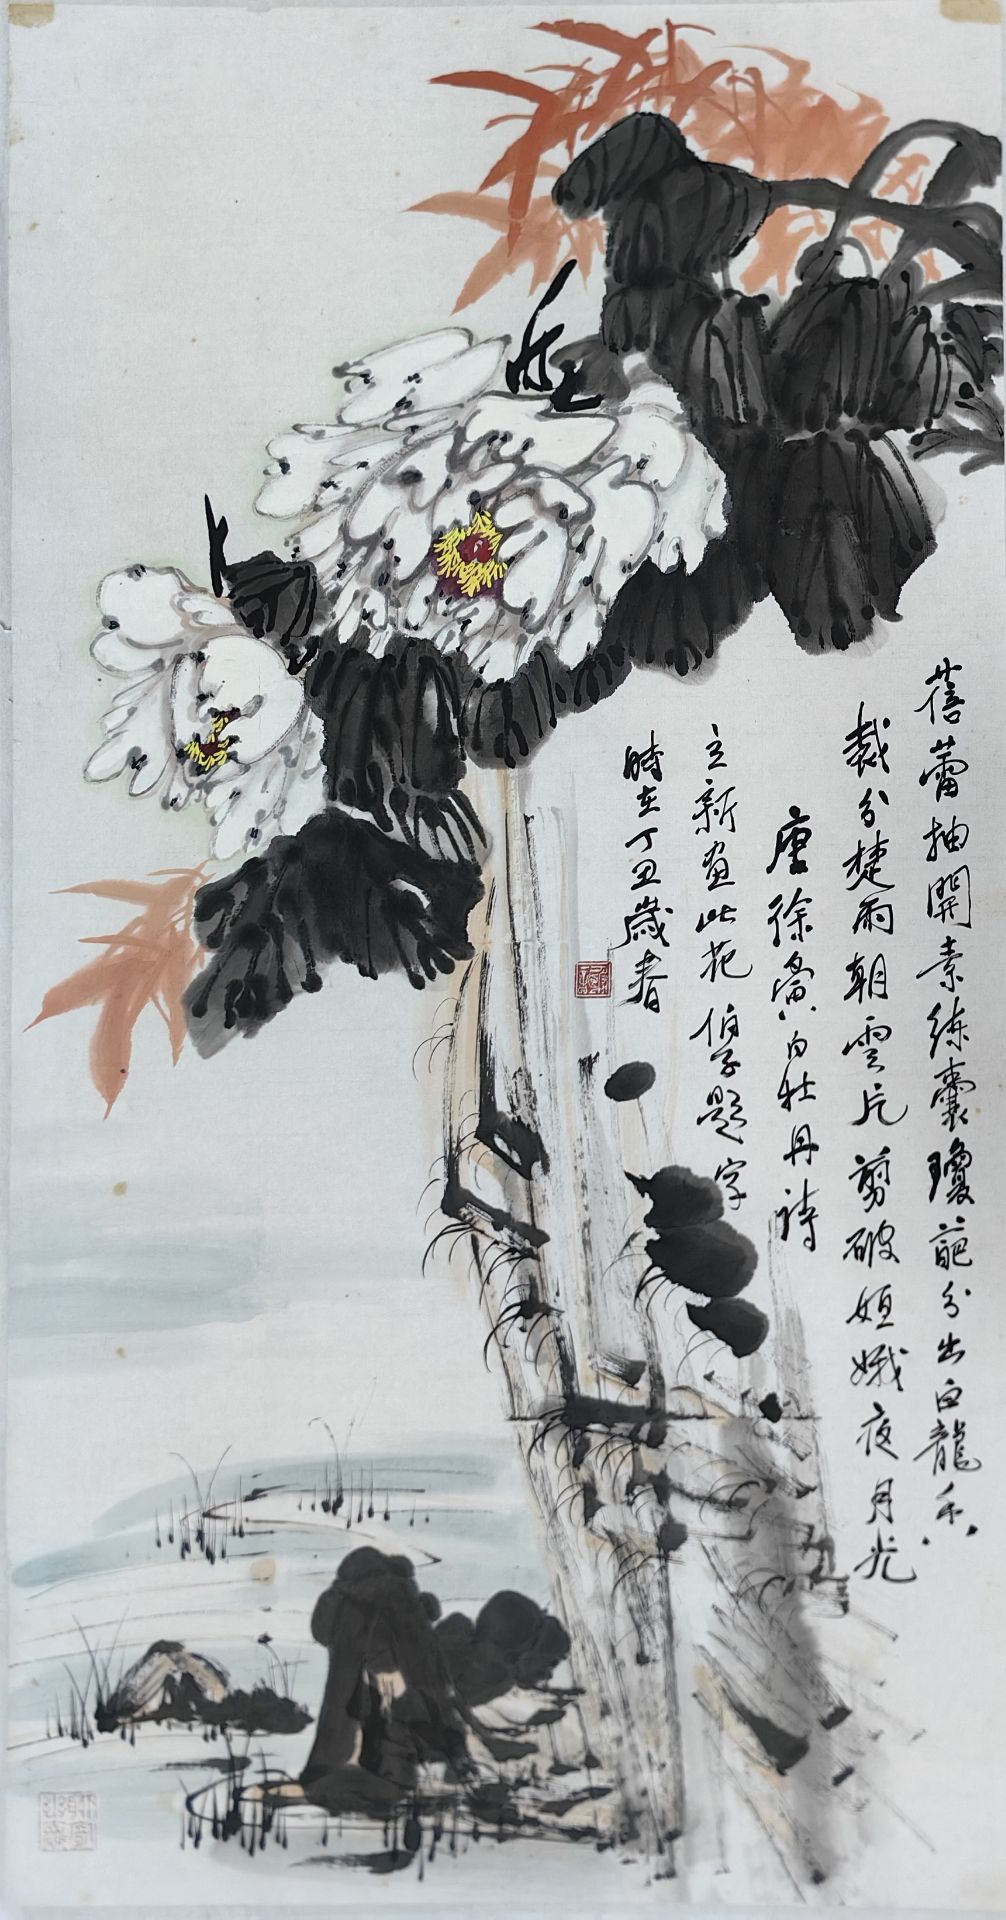 蓓蕾抽開素練囊瓊葩分出白龍香
裁分楚雨朝雲片剪破姮娥夜月光
唐徐夤白牡丹詩
立新画此花伯題字
時在丁丑歲春